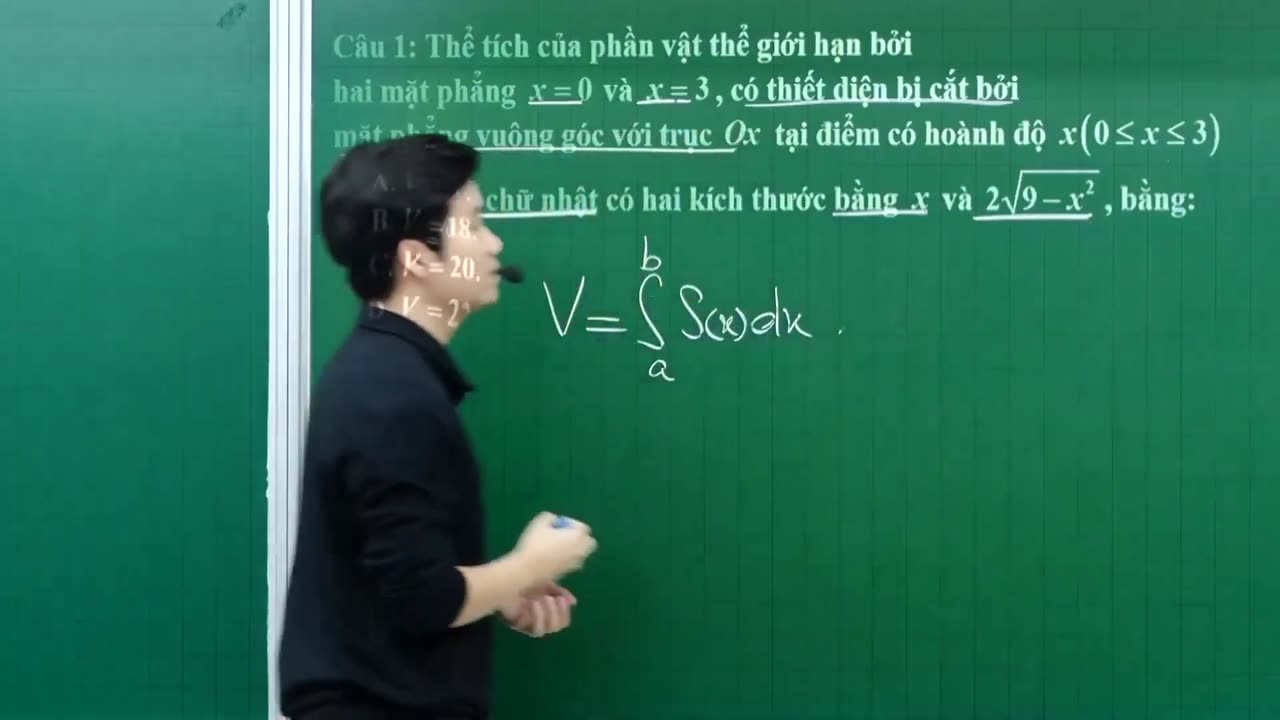 Câu 1: Thể tích của phần vật thể giới hạn bởi
hai mặt phẳng x = 0 và x = 3, có thiết diện bị cắt bởi
mặt phẳng vuông góc với trục Ox tại điểm có hoành độ x(0 ≤ x ≤ 3)
chữ nhật có hai kích thước bằng x và 2√(9 − x²), bằng:
A.
B. V = 18.
C. V = 20.
V = 2
V = ∫_a^b S(x)dx.